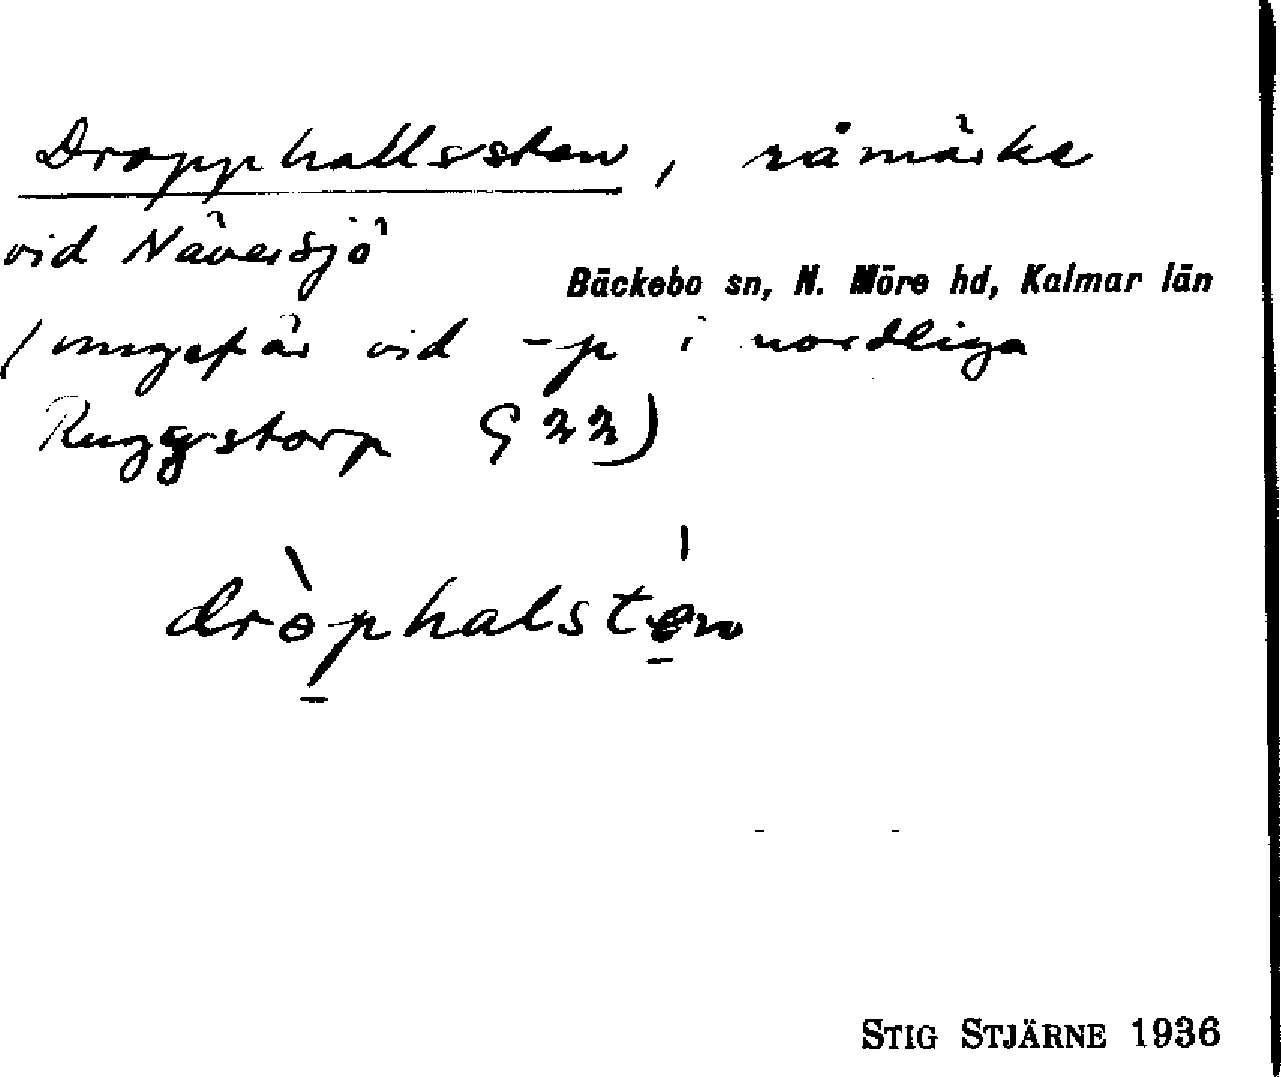 Dropphallssten, råmärke
vid Näversjö
Bäckebo sn, N. Möre hd, Kalmar län
(ungefär vid -p i nordliga
Ruggstorp G 22)
dròphalstén
STIG STJÄRNE 1936